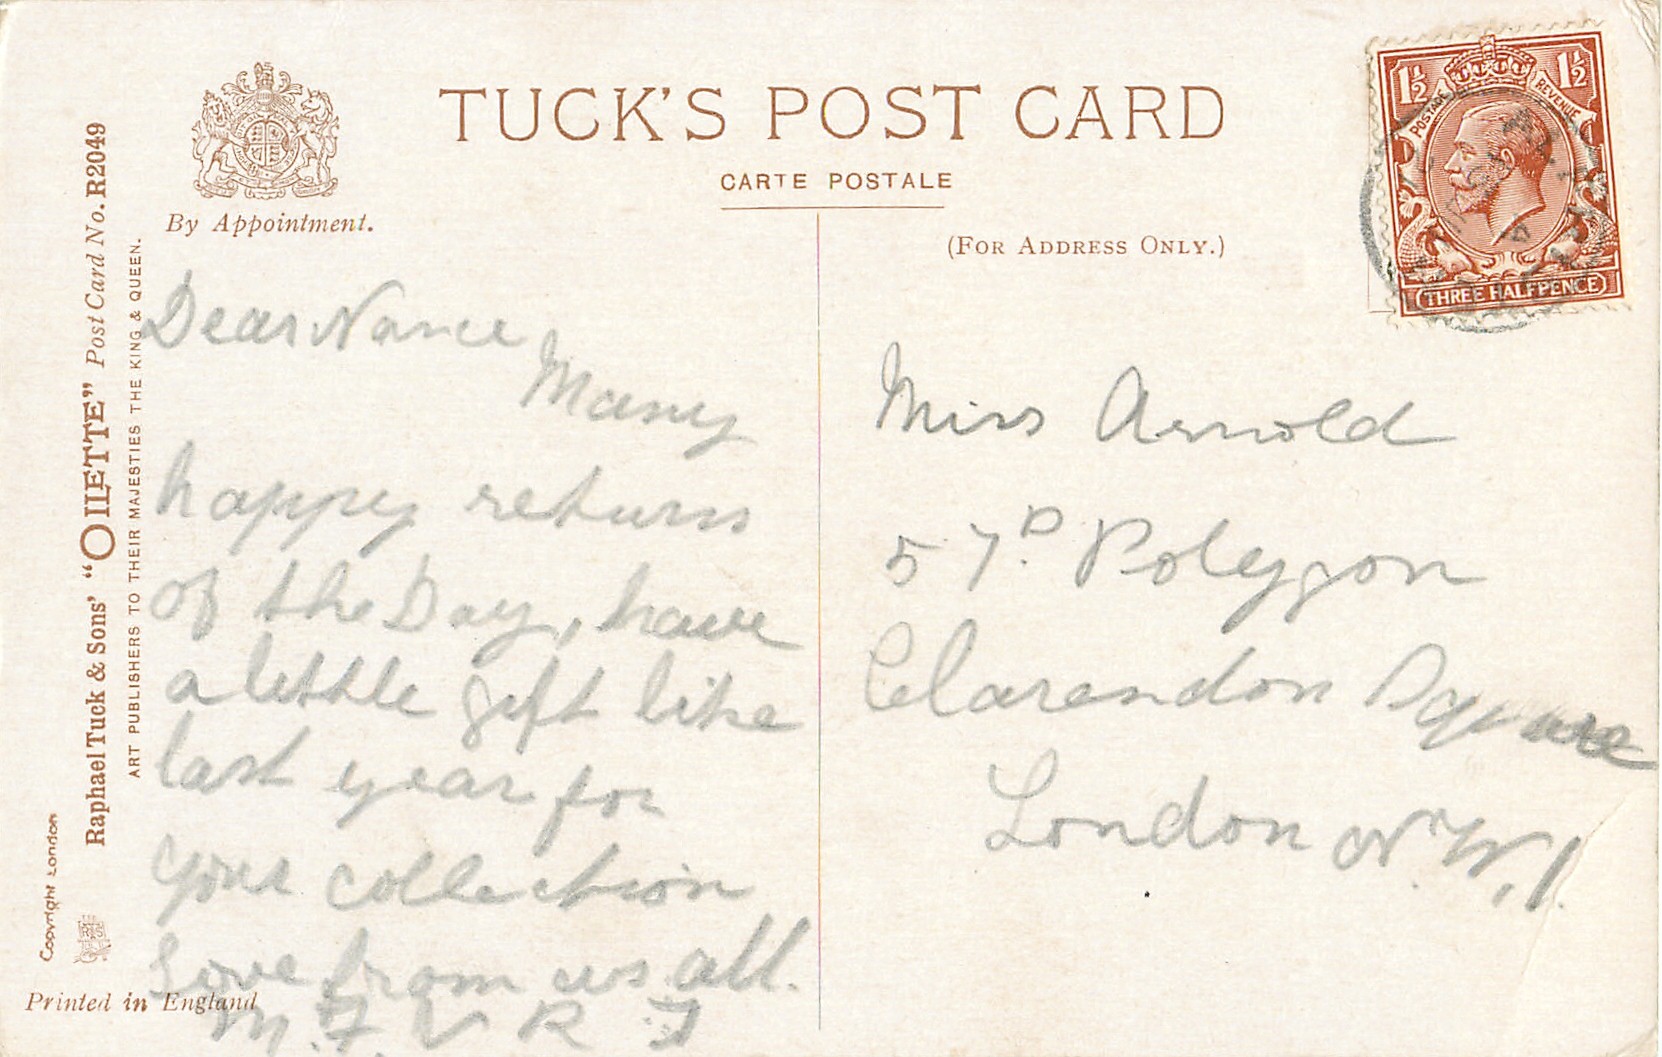 TUCK'S POST CARD
CARTE POSTALE
By Appointment.
(For Address Only.)
Raphael Tuck & Sons' "OILETTE" Post Card No. R2049
ART PUBLISHERS TO THEIR MAJESTIES THE KING & QUEEN.
Copyright London
Printed in England
1½ 1½
POSTAGE REVENUE
THREE HALFPENCE
Dear Nance
Many
happy returns
of the Day, have
a little gift like
last year for
your collection
Love from us all.
M. F. V R J
Miss Arnold
57D. Polygon
Clarendon Square
London N.W.1.